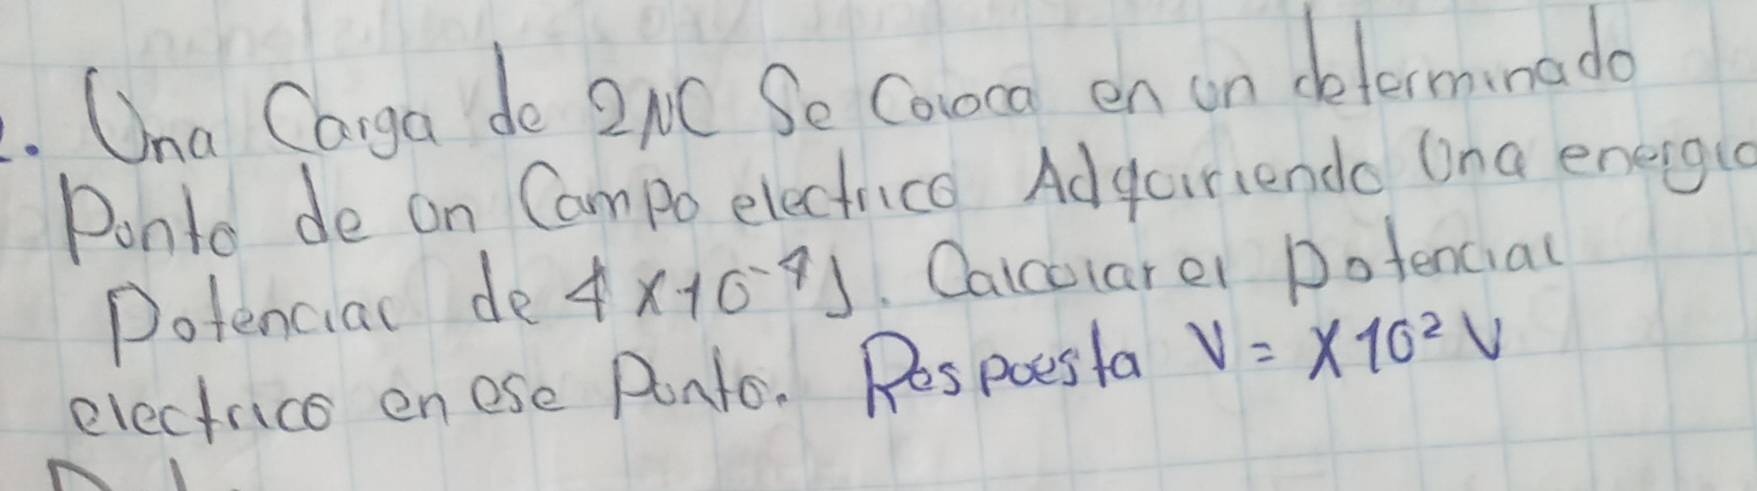 2. Una Carga de 2NC Se Coloca en un determinado
Punto de un Campo electrico Adquiriendo Una energia
Potencial de 4 x 10⁻⁴J. Calcular el Potencial
electrico en ese Punto. Respuesta V = X 10² V